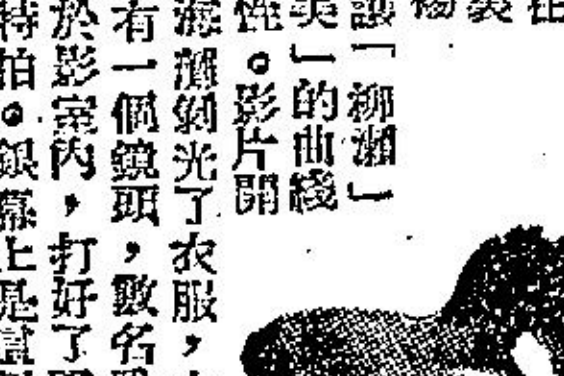 護「柳瀨」
美」的曲綫
性。影片開
海灘剝光了衣服，
有一個鏡頭，數名
於影室內，打好了
特拍。銀幕上是